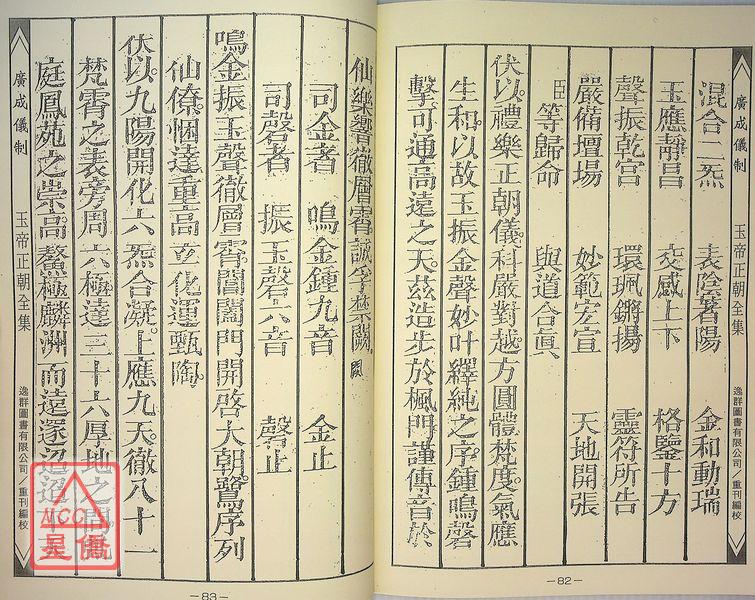 廣成儀制 玉帝正朝全集 逸群圖書有限公司／重刊編校
混合二炁 表陰著陽 金和動瑞
玉應靜昌 交感上下 格鑒十方
聲振乾宮 環珮鏘揚 靈符所告
嚴備壇場 妙範宏宣 天地開張
臣等歸命 與道合真
伏以禮樂正朝儀科嚴對越方圓體梵度氣應
生和以故玉振金聲妙叶繹純之序鍾鳴磬
擊可通高遠之天茲造步於楓門謹傳音於
—82—
仙樂響徹層霄誠孚禁闕
司金者 鳴金鍾九音 金止
司磬者 振玉磬六音 磬止
鳴金振玉聲徹層霄閶闔門開啓大朝鷺序列
仙僚悃達重高立化運甄陶
伏以九陽開化六炁合凝上應九天徹八十一
梵霄之表旁周六極達三十六厚地之間
庭鳳苑之崇高鰲極麟洲而遠邃
廣成儀制 玉帝正朝全集 逸群圖書有限公司／重刊編校
—83—
NCC
星僑